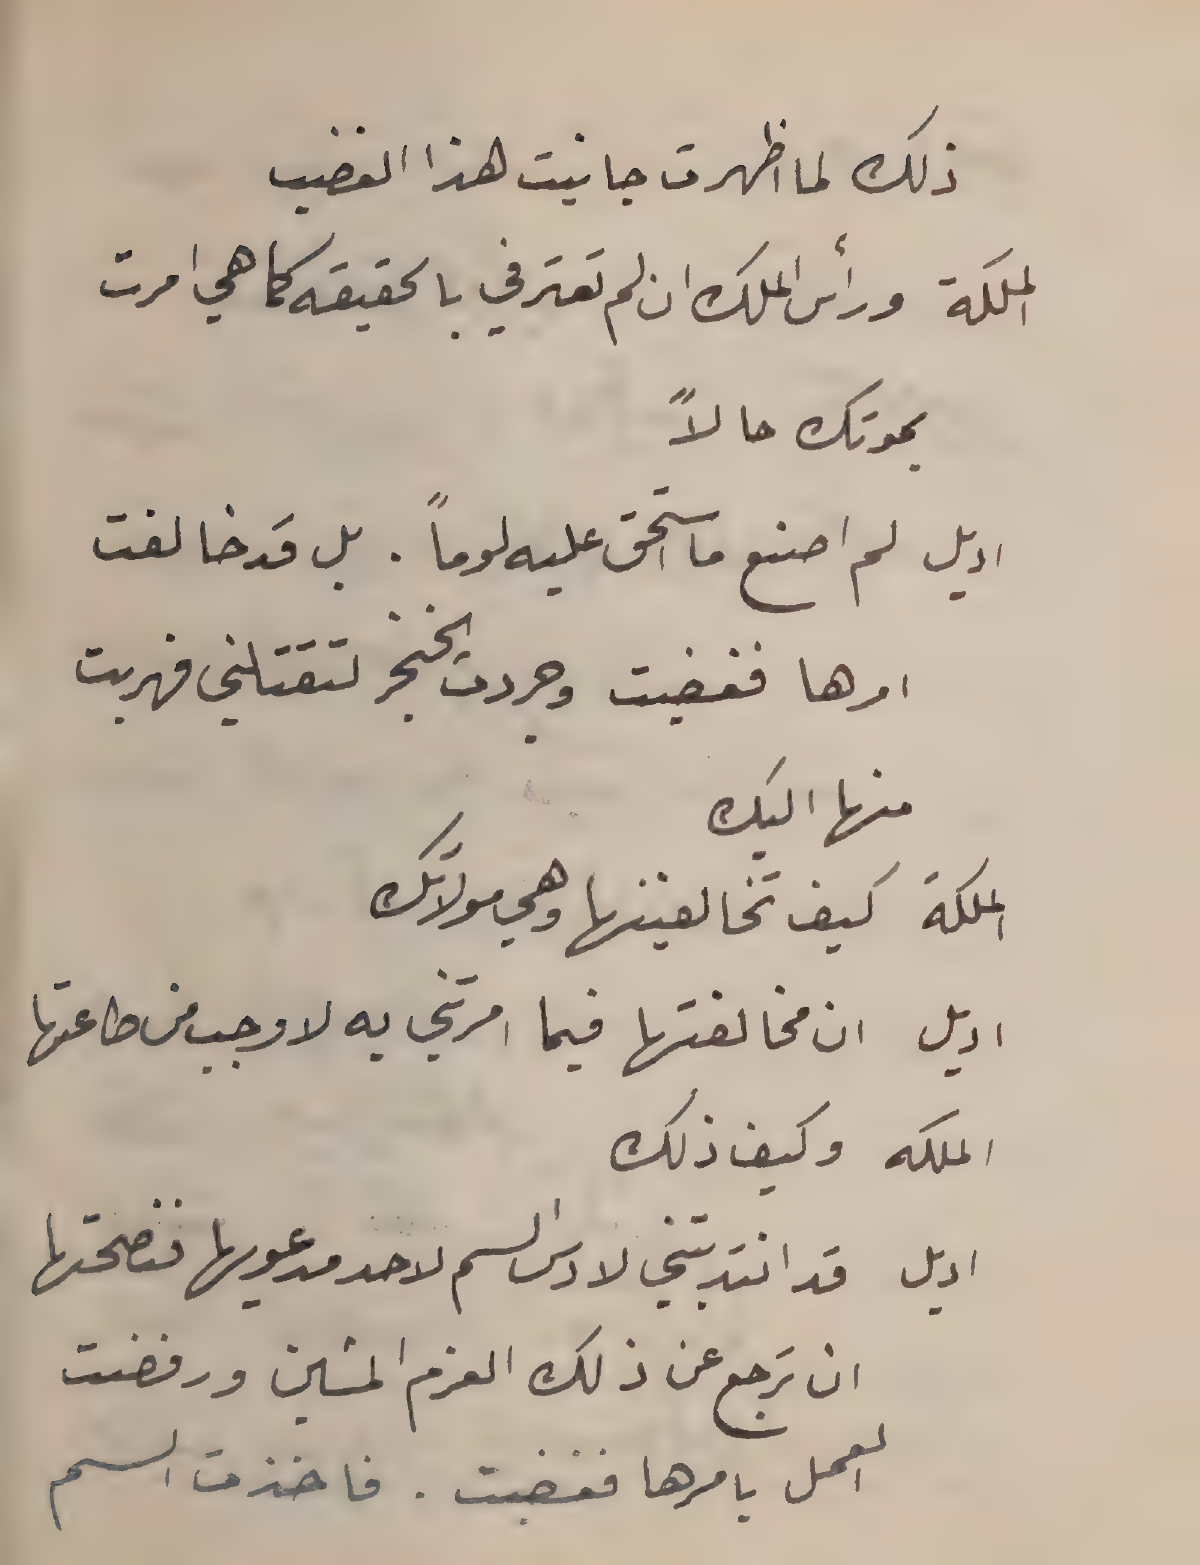 ذلك لما اظهرت جانيت هذا الغضب
الملكة ورأس الملك ان لم تعترفي بالحقيقه كما هي امرت
بموتك حالاً
اديل لم اصنع ما استحق عليه لوماً . بل قد خالفت
امرها فغضبت وجردت الخنجر لتقتلني فهربت
منها اليك
الملكة كيف تخالفينها وهي مولاتك
اديل ان مخالفتها فيما امرتني به لاوجب من طاعتها
الملكه وكيف ذلك
اديل قد انتدبتني لادس السم لاحد مدعويها فنصحتها
ان ترجع عن ذلك العزم المشين ورفضت
العمل بامرها فغضبت . فاخذت السم